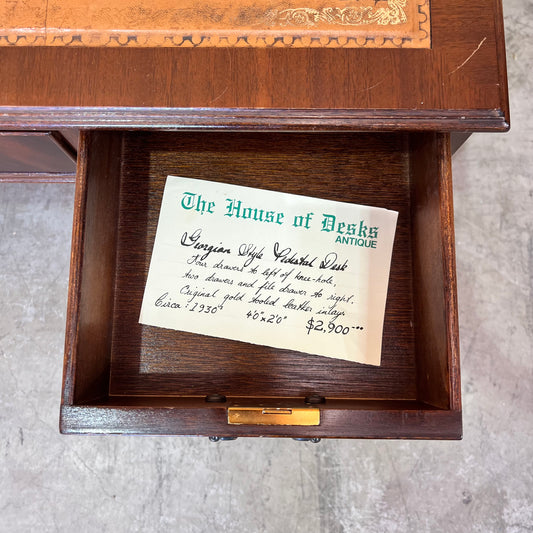 The House of Desks
ANTIQUE
Georgian Style Pedestal Desk
Four drawers to left of knee-hole,
two drawers and file drawer to right.
Original gold tooled leather inlays
Circa: 1930s 4'0"x2'0" $2,900--